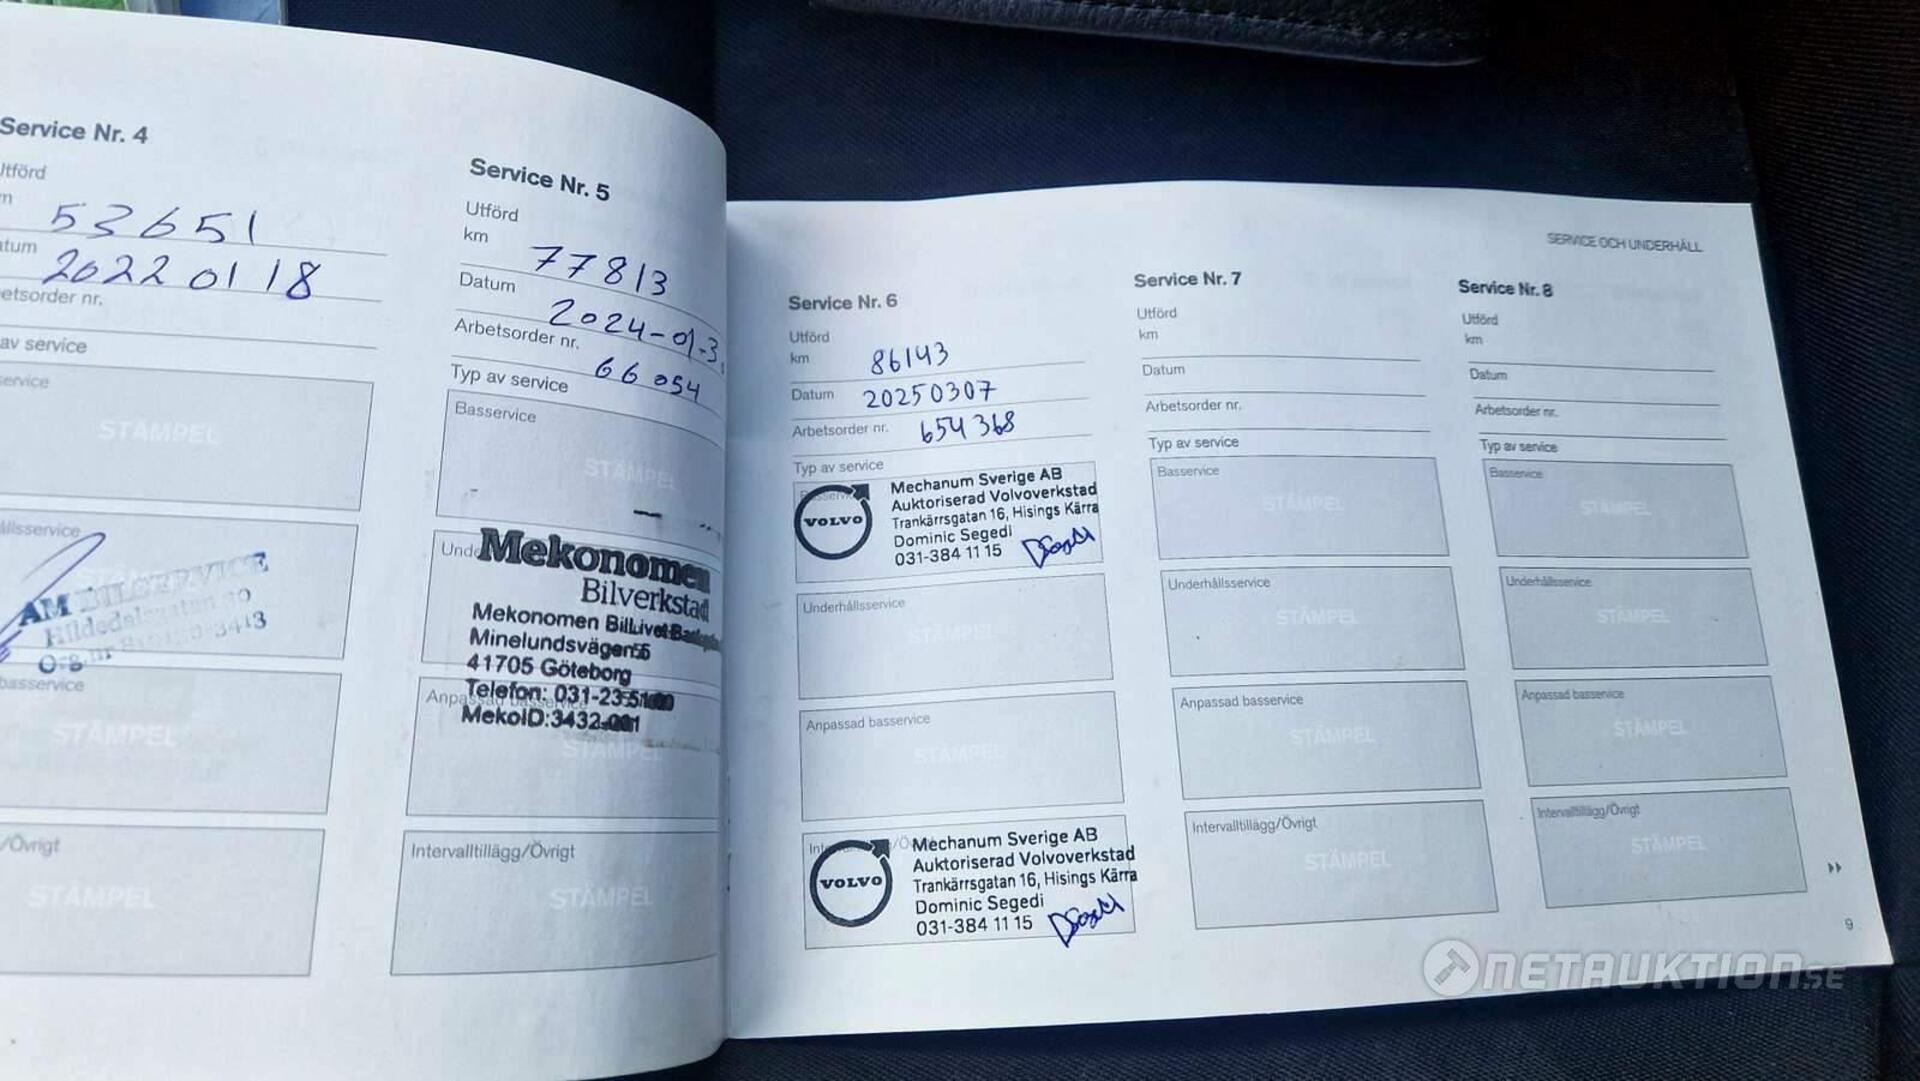 Service Nr. 4
Utförd
53651
20220118
etsorder nr.
av service
ervice
STÄMPEL
ållsservice
AM BILSERVICE
Hildedalsgatan
Org.nr
basservice
STÄMPEL
/Övrigt
STÄMPEL
Service Nr. 5
Utförd
km 77813
Datum 2024-01-3
Arbetsorder nr. 66054
Typ av service
Basservice
STÄMPEL
Mekonomen
Bilverkstad
Mekonomen BilLivet
Minelundsvägen 5
41705 Göteborg
Telefon: 031-23 51 00
MekoID:3432-001
Anpassad basservice
STÄMPEL
Intervalltillägg/Övrigt
STÄMPEL
SERVICE OCH UNDERHÅLL
Service Nr. 6
Utförd
km 86143
Datum 20250307
Arbetsorder nr. 654368
Typ av service
Basservice
VOLVO
Mechanum Sverige AB
Auktoriserad Volvoverkstad
Trankärrsgatan 16, Hisings Kärra
Dominic Segedi
031-384 11 15
Underhållsservice
STÄMPEL
Anpassad basservice
STÄMPEL
VOLVO
Mechanum Sverige AB
Auktoriserad Volvoverkstad
Trankärrsgatan 16, Hisings Kärra
Dominic Segedi
031-384 11 15
Service Nr. 7
Utförd
km
Datum
Arbetsorder nr.
Typ av service
Basservice
STÄMPEL
Underhållsservice
STÄMPEL
Anpassad basservice
STÄMPEL
Intervalltillägg/Övrigt
STÄMPEL
Service Nr. 8
Utförd
km
Datum
Arbetsorder nr.
Typ av service
Basservice
STÄMPEL
Underhållsservice
STÄMPEL
Anpassad basservice
STÄMPEL
Intervalltillägg/Övrigt
STÄMPEL
9
NETAUKTION.SE